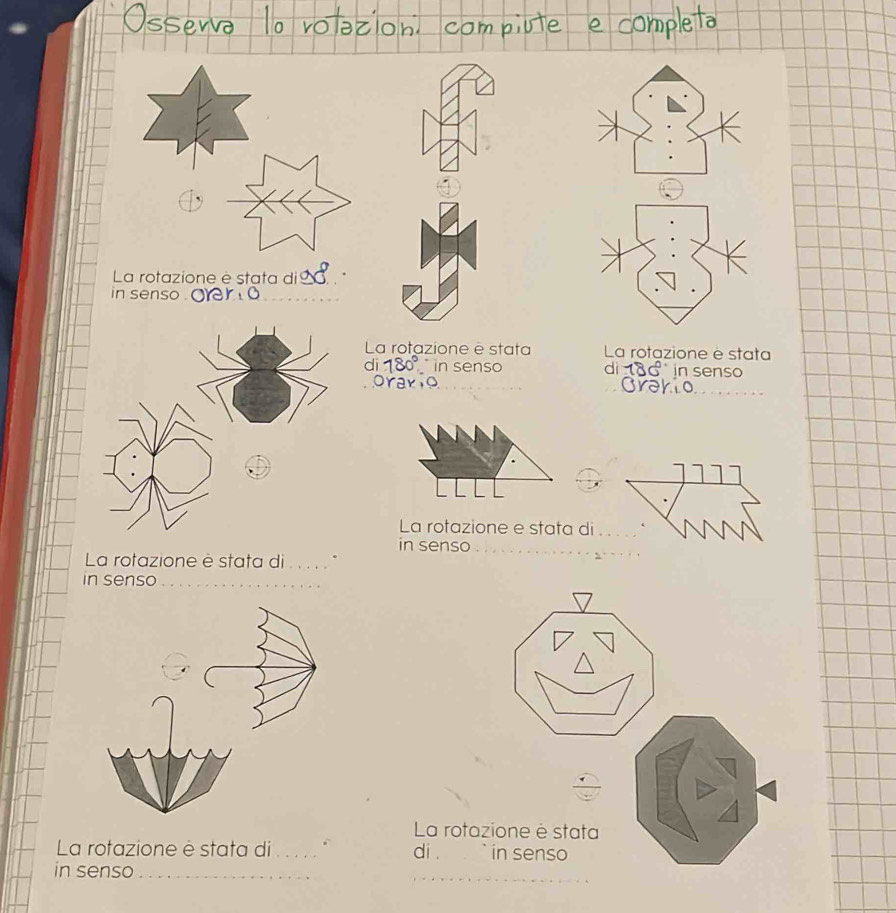 Osserva le rotazioni compiute e completa
La rotazione è stata di 90°
in senso orario
La rotazione è stata
di 180° in senso
orario
La rotazione è stata
di 180° in senso
orario
La rotazione è stata di ..... °
in senso ....................
La rotazione e stata di ..... °
in senso ....................
La rotazione è stata di ..... °
in senso ....................
La rotazione è stata
di . ° in senso
....................